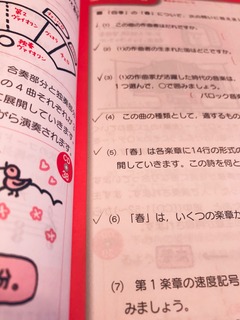 第2
ヴァイオリン
独奏
ヴァイオリン
合奏部分と独奏部
の4曲それぞれが
に展開していきます
がら演奏されます
「春」について、次の問いに答えま
(1) この曲の作曲者はだれですか。
(2) (1)の作曲者の生まれた国はどこですか。
(3) (1)の作曲家が活躍した時代の音楽は、
1つ選んで、○で囲みましょう。
バロック音楽
(4) この曲の種類として、適するもの
(5) 「春」は各楽章に14行の形式の
開していきます。この詩を何と
(6) 「春」は、いくつの楽章か
(7) 第1楽章の速度記号
みましょう。
分。